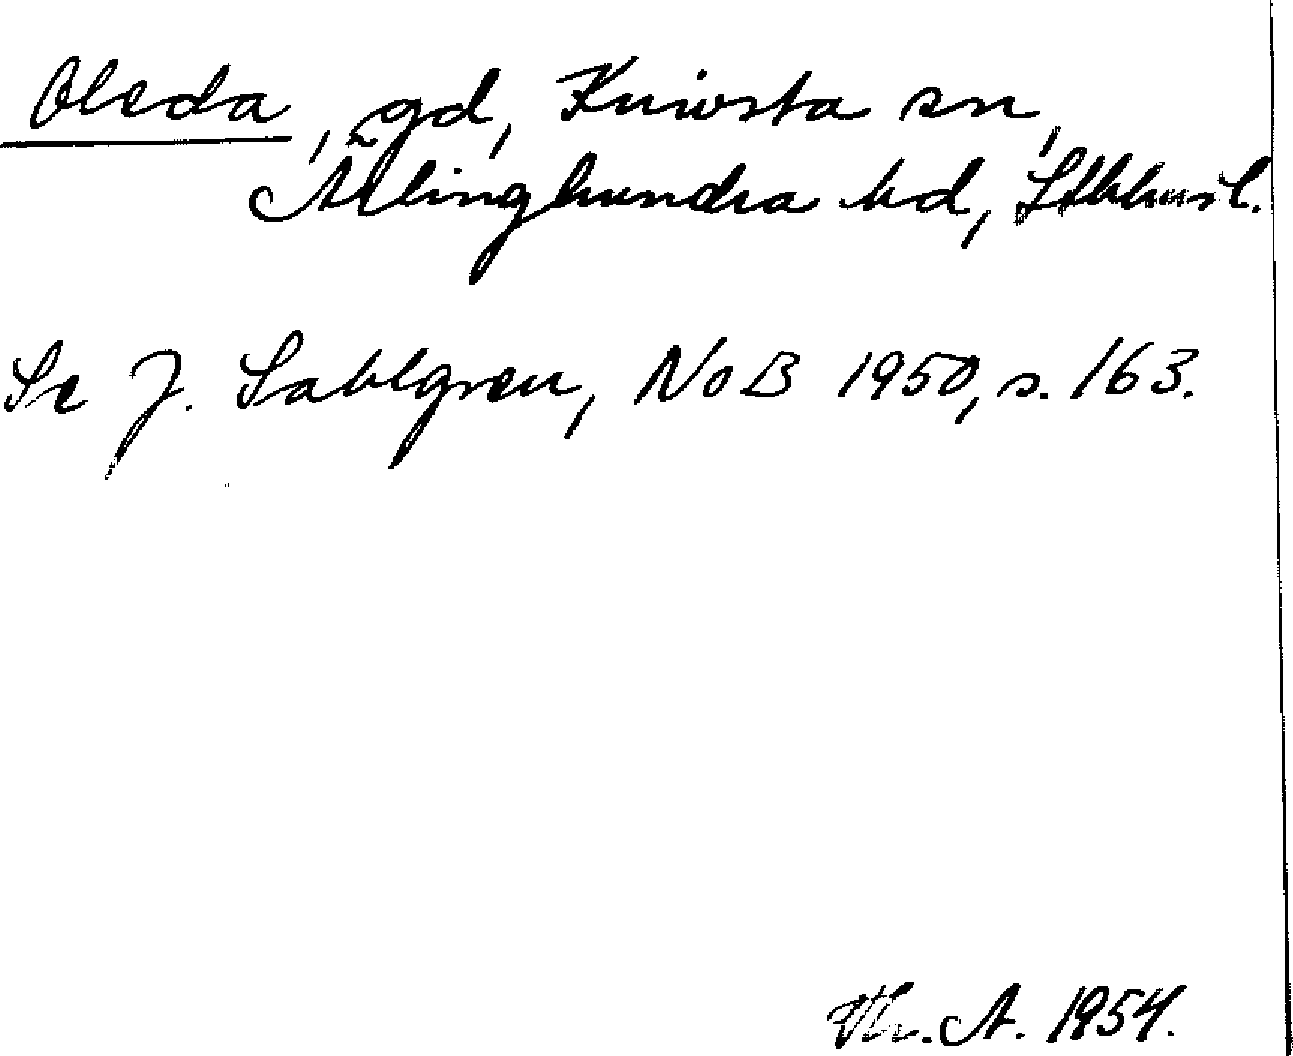 Oleda, gd, Knivsta sn,
Ärlinghundra hd, Sthlms l.
Se J. Sahlgren, NoB 1950, s. 163.
Th. A. 1954.